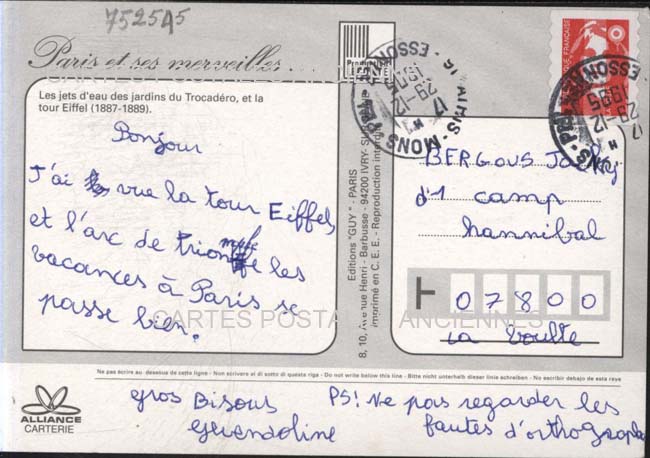 752545
Paris et ses merveilles...
Les jets d'eau des jardins du Trocadéro, et la
tour Eiffel (1887-1889).
Bonjour
J'ai vue la tour Eiffel
et l'arc de les
vacances à Paris se
passe bien.
Editions "GUY" - PARIS
8, 10, Avenue Henri - Barbusse - 94200 IVRY-SU
imprimé en C. E. E. - Reproduction interd
MONS
ESSONN
17 H
29-12
1995
ESSON
17 H
29-12
1995
QUE FRANÇAISE
BERGOUS
d'1 camp
hannibal
07800
la voulte
CARTES POSTA ANCIENNES
Ne pas écrire au dessous de cette ligne - Non scrivere al di sotto di questa riga - Do not write below this line - Bitte nicht unterhalb dieser linie schreiben - No escribir debajo de esta raya
ALLIANCE
CARTERIE
gros Bisous
Gwendoline
PS! Ne pas regarder les
fautes d'orthographe